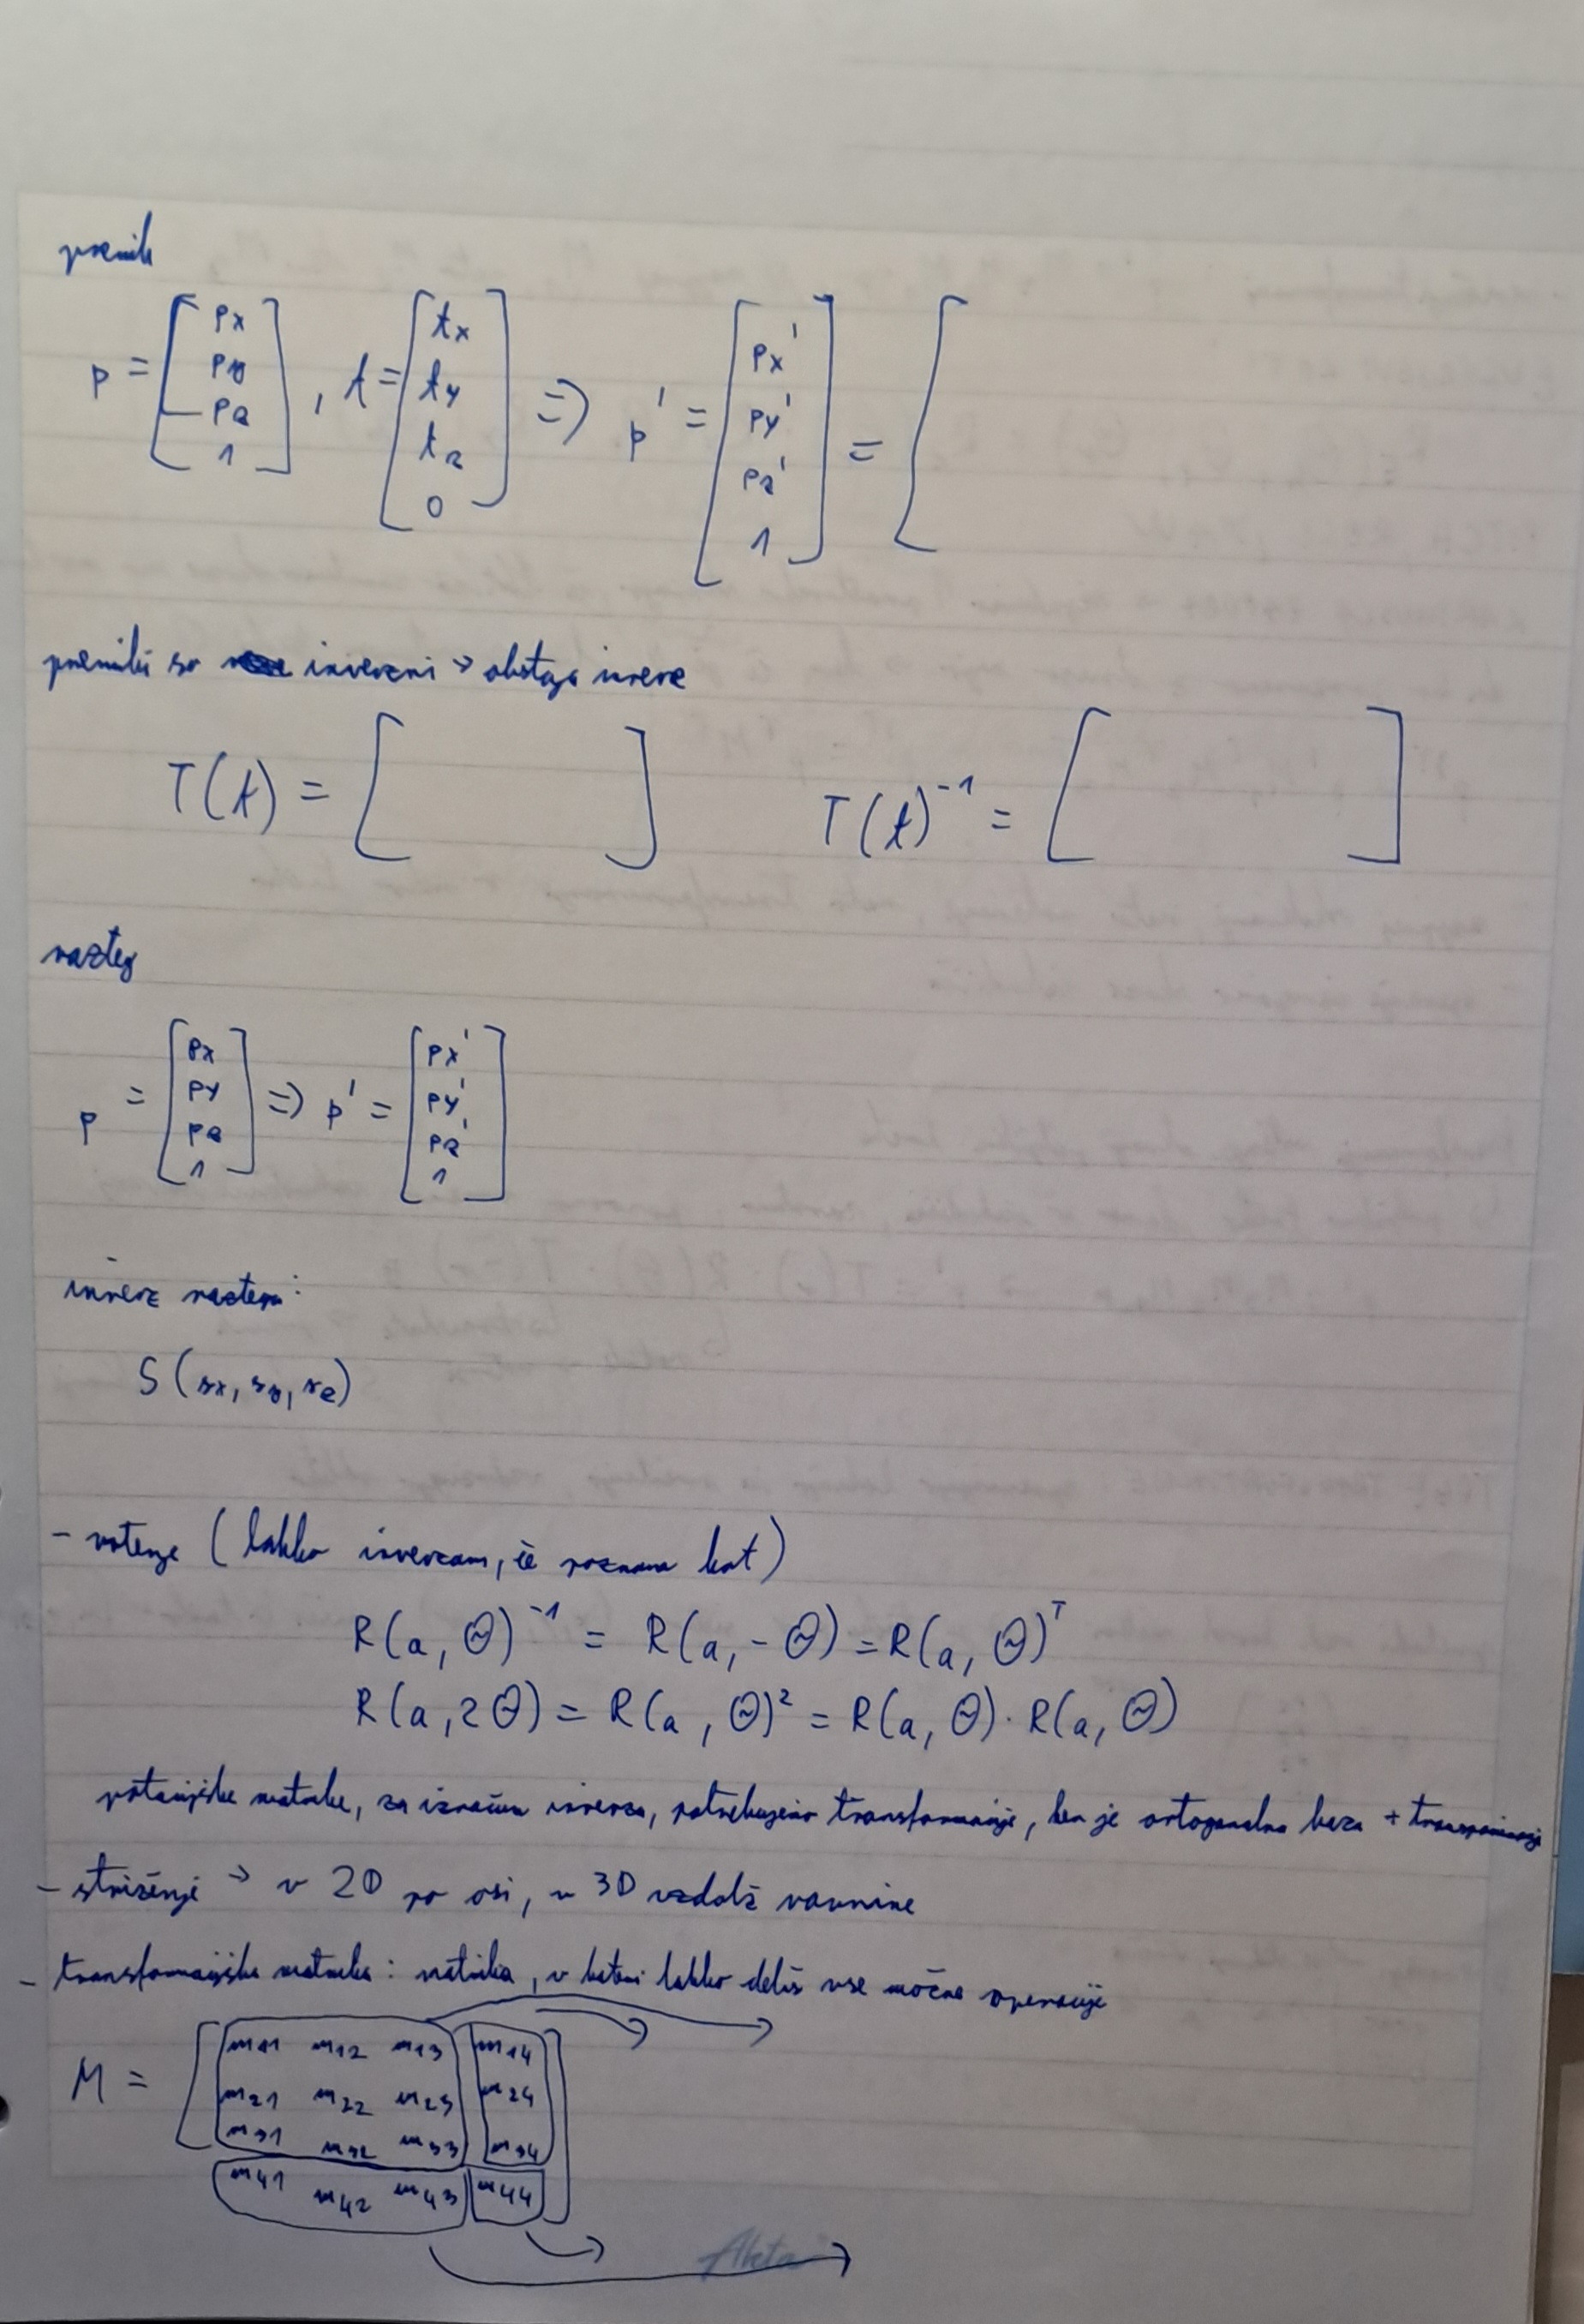 premik
p = [ px py pz 1 ] , t = [ tx ty tz 0 ] => p' = [ px' py' pz' 1 ] = [
premiki so inverzni → obstaja inverz
T(t) = [ ] T(t)⁻¹ = [ ]
razteg
p = [ px py pz 1 ] => p' = [ px' py' pz' 1 ]
inverz raztega:
S (sx, sy, sz)
- rotenje (lahko inverzam, če poznamo kot)
R(a, Θ)⁻¹ = R(a, -Θ) = R(a, Θ)ᵀ
R(a, 2Θ) = R(a, Θ)² = R(a, Θ) · R(a, Θ)
rotacijske matrike, za izračun inverza, potrebujemo transformacije, ker je ortogonalna baza +
- striženje → v 2D po osi, v 3D vzdolž ravnine
- transformacijska matrika: matrika, v kateri lahko deliš vse možne operacije
M = [ m11 m12 m13 m14
m21 m22 m23 m24
m31 m32 m33 m34
m41 m42 m43 m44 ]